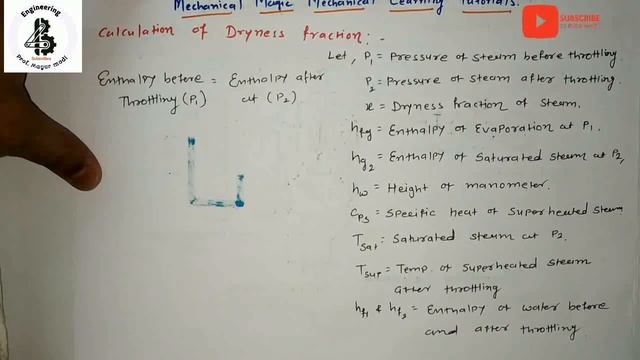 Mechanical Magic Mechanical Learning Tutorials.
Engineering
4
Subscribe
Prof. Mayur Modi
SUBSCRIBE
Calculation of Dryness fraction: -
Enthalpy before = Enthalpy after
Throttling (P1) at (P2)
Let, P1 = Pressure of steam before throttling.
P2 = Pressure of steam after throttling.
x = Dryness fraction of steam.
hfg = Enthalpy of Evaporation at P1.
hg2 = Enthalpy of Saturated steam at P2,
hw = Height of manometer.
CPs = Specific heat of Superheated steam
Tsat = Saturated steam at P2.
Tsup = Temp. of Superheated steam
after throttling
hf1 & hf2 = Enthalpy of water before
and after throttling